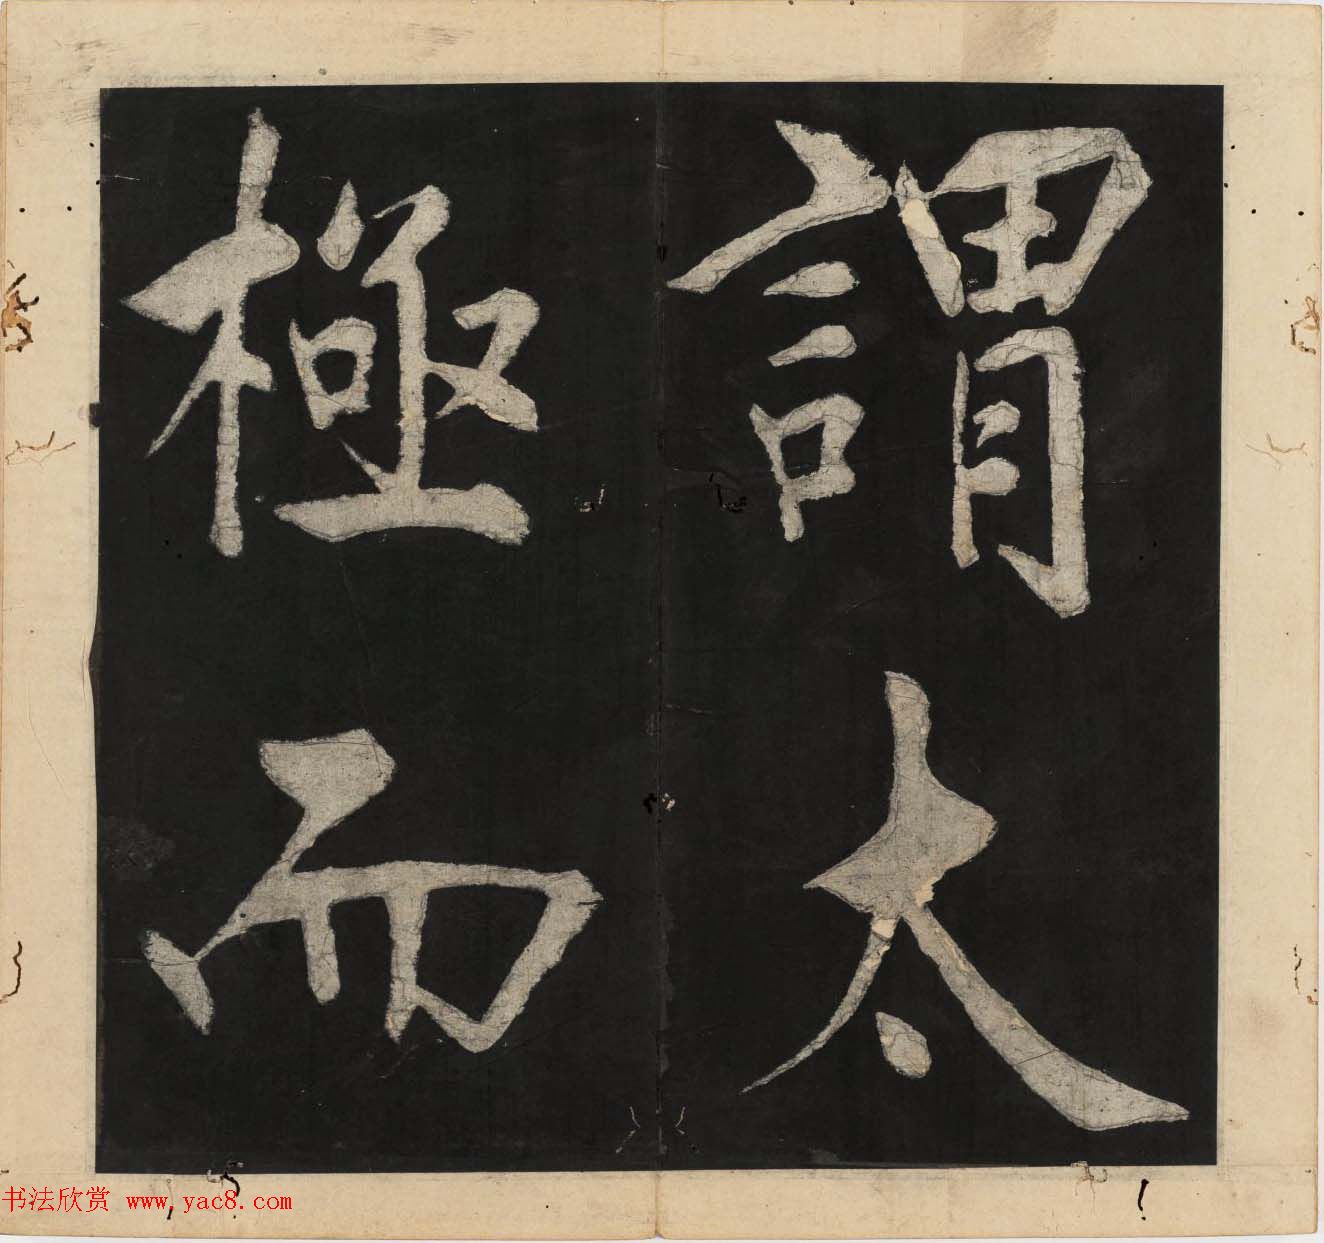 謂太
極而
书法欣赏 www.yac8.com